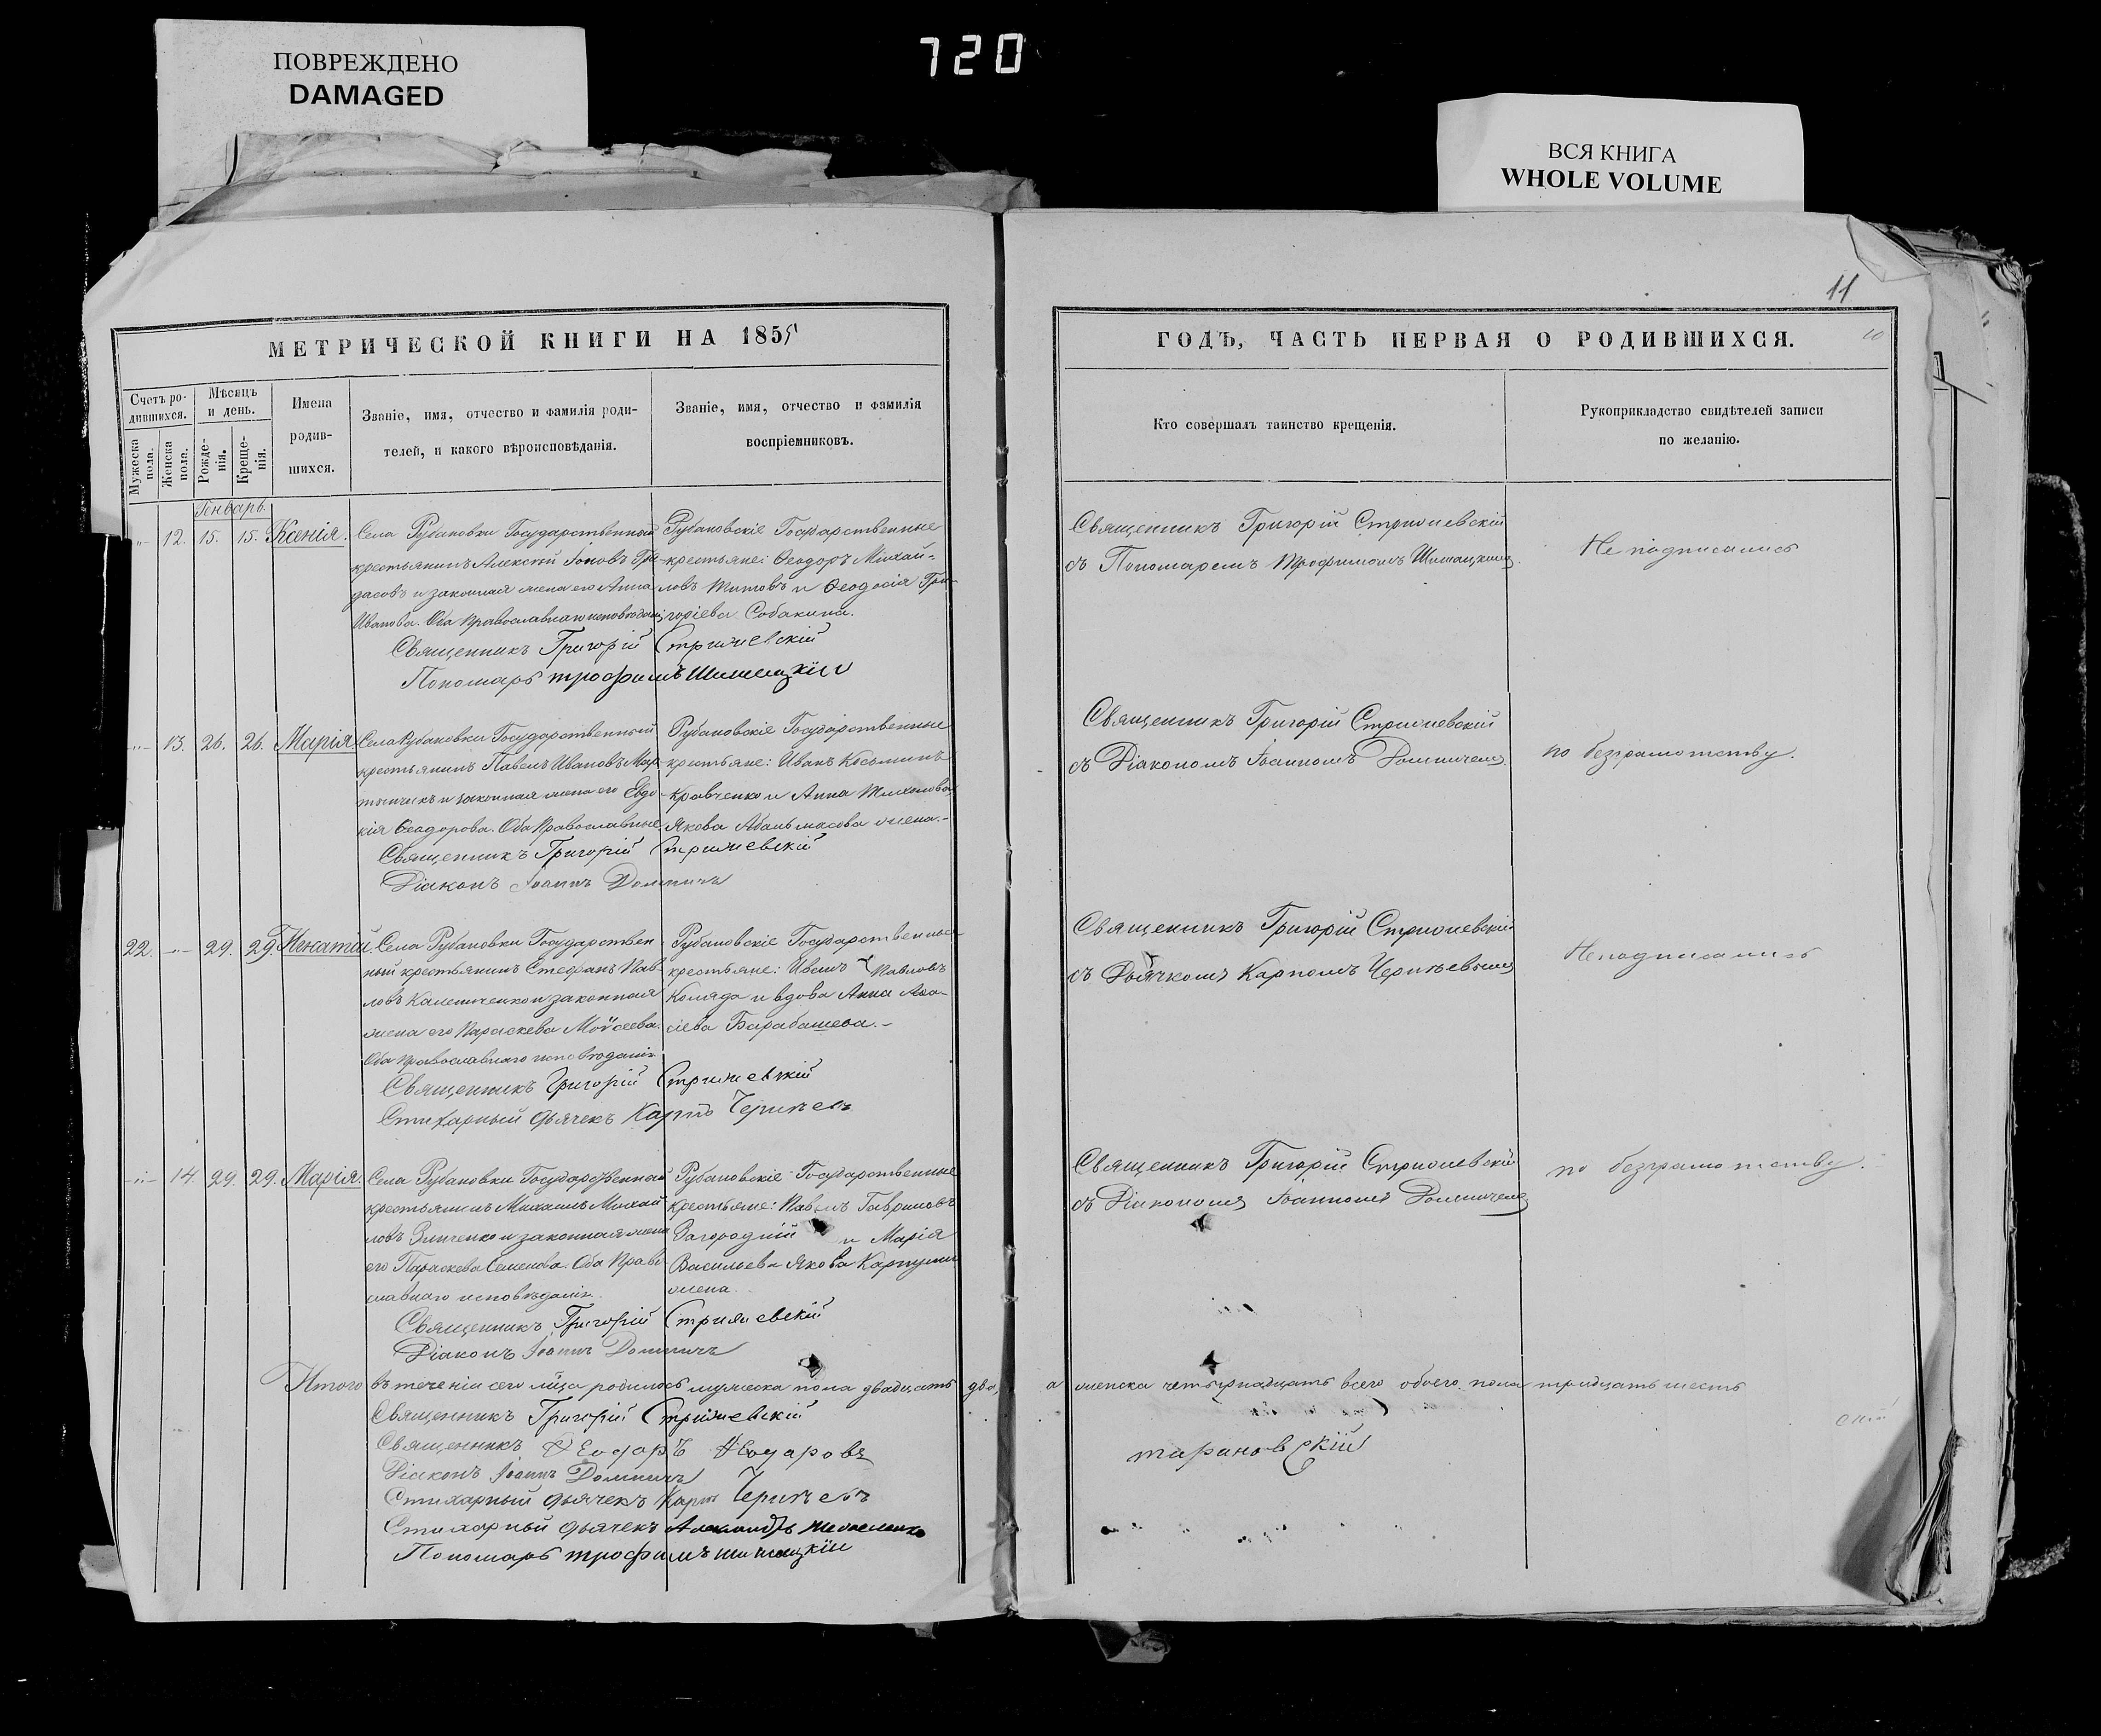 ПОВРЕЖДЕНО
DAMAGED
720
ВСЯ КНИГА
WHOLE VOLUME
11
МЕТРИЧЕСКОЙ КНИГИ НА 1855
Счетъ ро-
дившихся.
Мужеска
пола.
Женска
пола.
Мѣсяцъ
и день.
Рожде-
нія.
Креще-
нія.
Имена
родив-
шихся.
Званіе, имя, отчество и фамилія роди-
телей, и какого вѣроисповѣданія.
Званіе, имя, отчество и фамилія
воспріемниковъ.
Генварь.
12. 15. 15. Ксенія.
Села Рубановки Государственный
крестьянинъ Алексѣй
и законная жена его Анна
Иванова. Оба Православнаго исповѣданія
Рубановскіе Государственные
крестьяне: Ѳеодоръ Михай-
ловъ Титовъ и Ѳеодосія Гри-
горіева Собакина.
Священникъ Григорій Стрижевскій
Пономарь трофимъ Шишацкіи
13. 26. 26. Марія
Села Рубановки Государственный
крестьянинъ Павелъ Ивановъ Мар-
тынчикъ и законная жена его Евдо-
кія Ѳеодорова. Оба Православные
Рубановскіе Государственные
крестьяне: Иванъ Косьминъ
Кравченко и Анна Тихонова
Якова жена.-
Священникъ Григорій Стрижевскій
Діаконъ Іоаннъ
22. 29. 29.
Села Рубановки Государствен
ный крестьянинъ Стефанъ Пав-
ловъ Калениченко и законная
жена его Параскева Моѵсеева.
Оба Православнаго исповѣданія
Рубановскіе Государственные
крестьяне: Иванъ Павловъ
Коляда и вдова Анна
Барабашева.-
Священникъ Григорій Стрижевскій
Стихарный дьячекъ Карпъ
14. 29. 29. Марія.
Села Рубановки Государственный
крестьянинъ Михаилъ Михай
ловъ Зинченко и законная жена
его Параскева Семенова. Оба Право
славнаго исповѣданія.
Рубановскіе Государственные
крестьяне: Павелъ Гавриловъ
Загородній и Марія
Васильева Якова
жена.
Священникъ Григорій Стрижевскій
Діаконъ Іоаннъ
Итого въ теченіи сего мѣсяца родилось мужеска пола двадцать два,
Священникъ Григорій Стрижевскій
Священникъ Ѳеодоръ Ѳеодоровъ
Діаконъ Іоаннъ
Стихарный дьячекъ Карпъ
Стихарный дьячекъ Александръ
Пономарь трофимъ шишацкіи
ГОДЪ, ЧАСТЬ ПЕРВАЯ О РОДИВШИХСЯ.
10
Кто совершалъ таинство крещенія.
Рукоприкладство свидѣтелей записи
по желанію.
Священникъ Григорій Стрижевскій
съ Пономаремъ Трофимомъ Шишацкимъ.
Не подписались
Священникъ Григорій Стрижевскій
съ Діакономъ Іоанномъ
по безграмотству.
Священникъ Григорій Стрижевскій
съ Дьячкомъ Карпомъ
Не подписались
Священникъ Григорій Стрижевскій
съ Діакономъ Іоанномъ
по безграмотству.
а женска четырнадцать всего обоего пола тридцать шесть
тарановскій